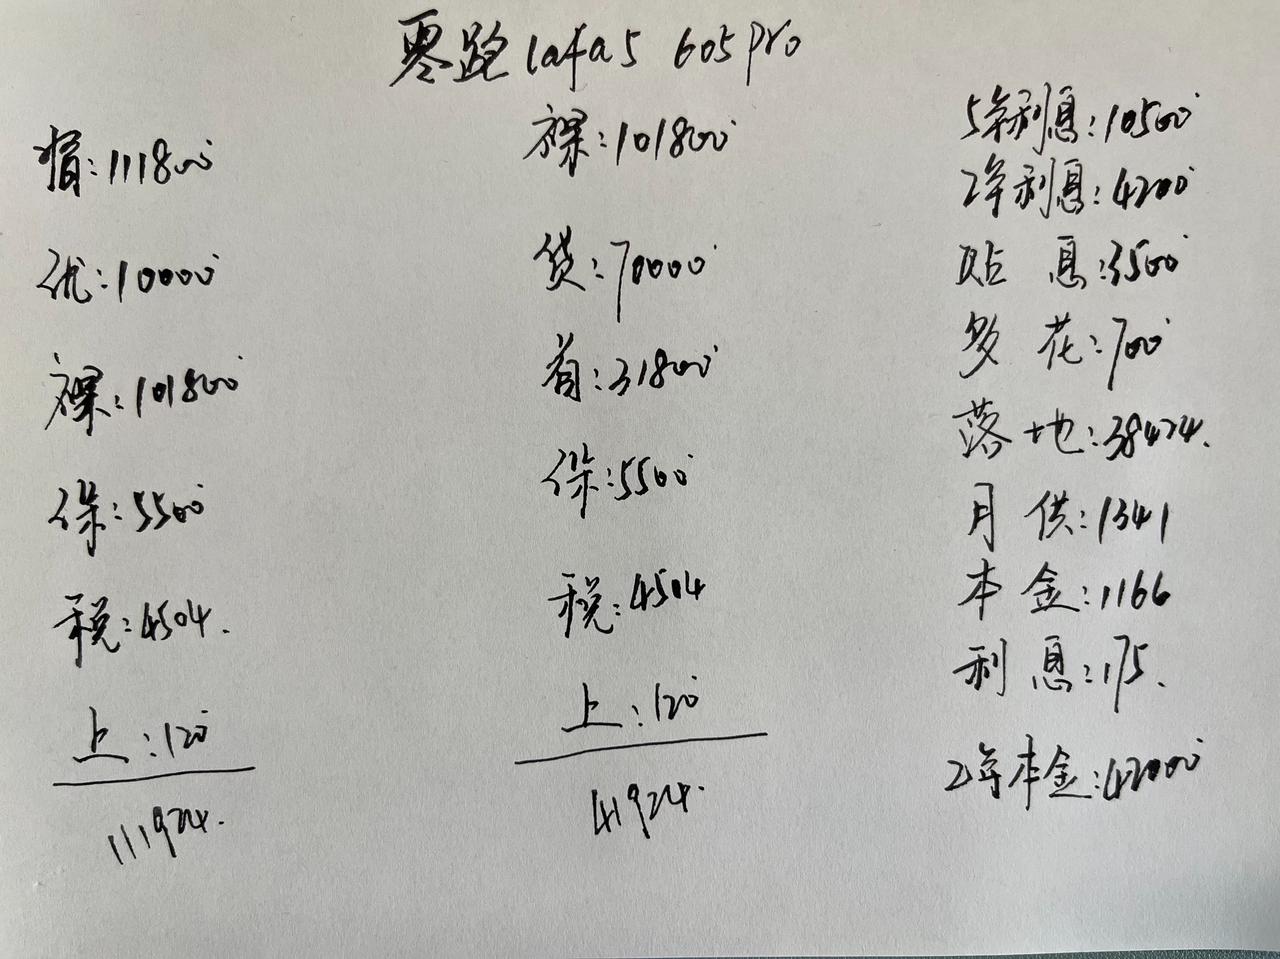 零跑 lafa5 605 pro
指:111800
优:10000
裸:101800
保:5500
税:4504.
上:120
111924.
裸:101800
贷:70000
首:31800
保:5500
税:4504
上:120
41924.
5年利息:10500
2年利息:4200
贴 息:3500
多 花:700
落 地:38424.
月 供:1341
本 金:1166
利 息:175.
2年本金:42000